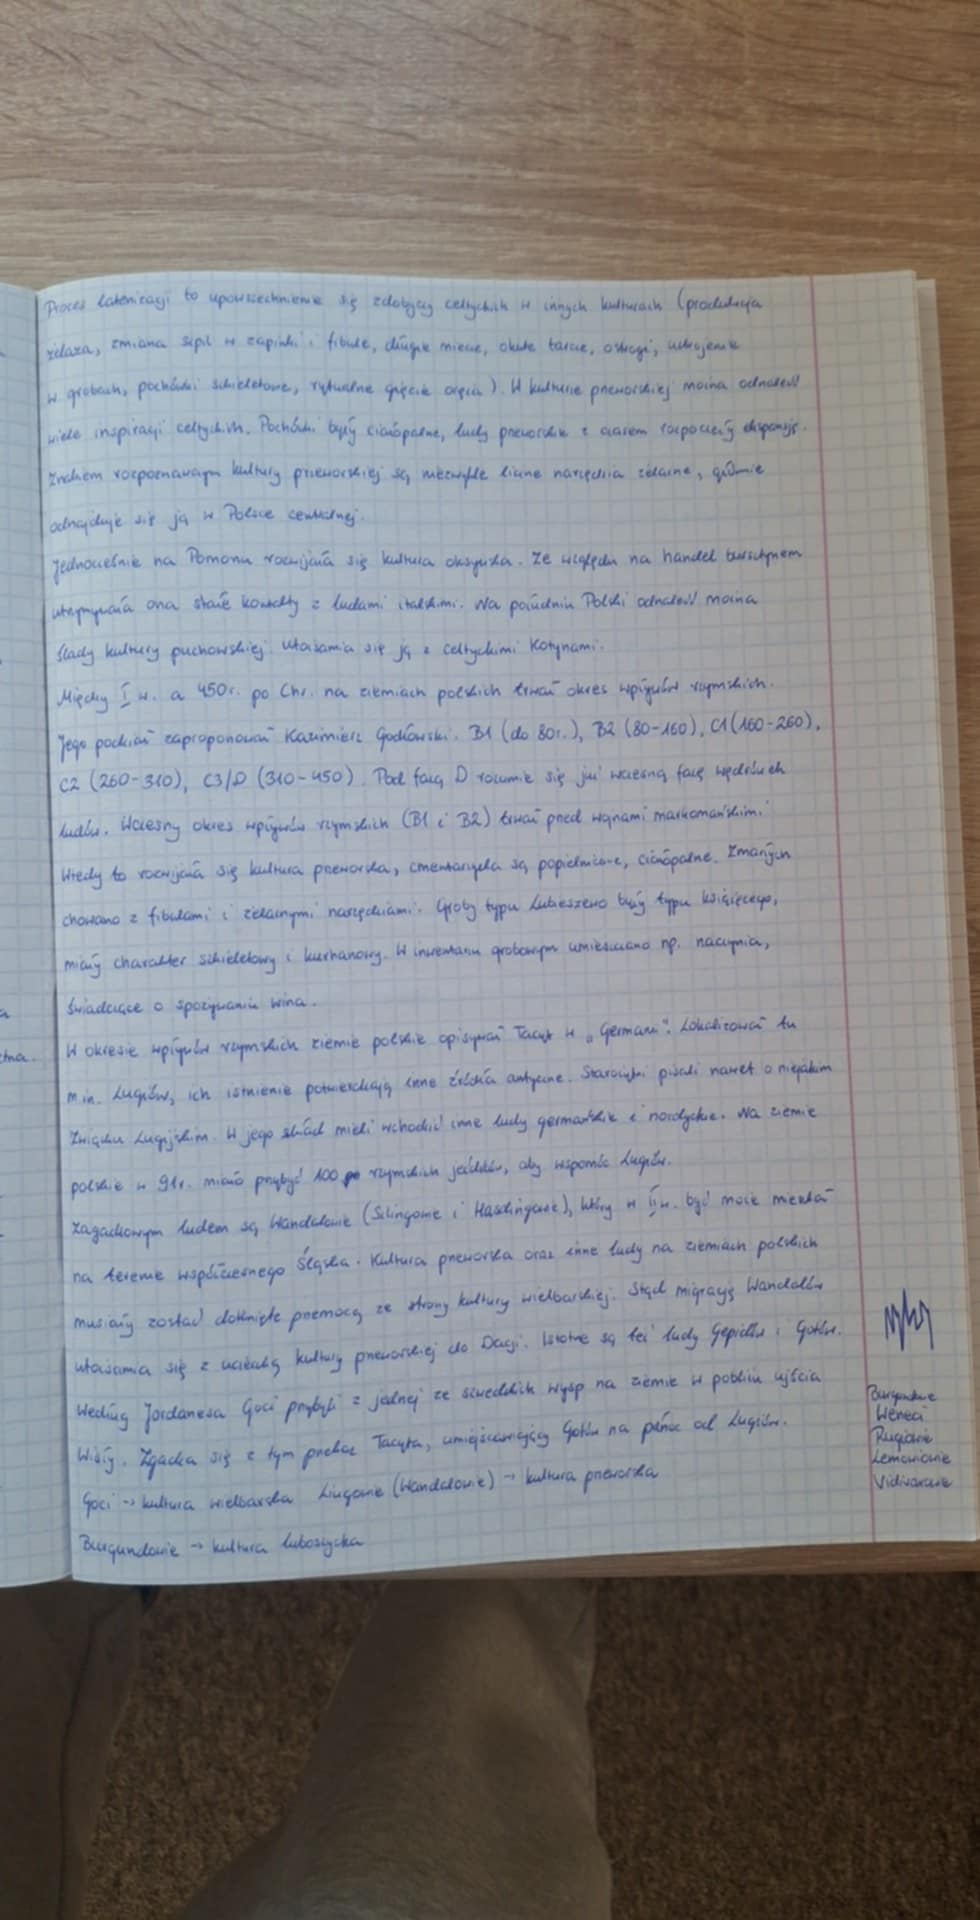 Proces latenizacji to upowszechnienie się zdobyczy celtyckich w innych kulturach (produkcja
żelaza, zmiana szpil w zapinki i fibule, długie miecze, okute tarcze, ostrogi, uzbrojenie
w grobach, pochówki szkieletowe, rytualne gięcie oręża). W kulturze przeworskiej można odnaleźć
wiele inspiracji celtyckich. Pochówki były ciałopalne, ludy przeworskie z czasem rozpoczęły ekspansję.
Znakiem rozpoznawczym kultury przeworskiej są niezwykle liczne narzędzia żelazne, głównie
odnajduje się ją w Polsce centralnej.
Jednocześnie na Pomorzu rozwijała się kultura oksywska. Ze względu na handel bursztynem
utrzymywała ona stałe kontakty z ludami italskimi. Na południu Polski odnaleźć można
ślady kultury puchowskiej. Utożsamia się ją z celtyckimi Kotynami.
Między I w. a 450r. po Chr. na ziemiach polskich trwał okres wpływów rzymskich.
Jego podział zaproponował Kazimierz Godłowski. B1 (do 80r.), B2 (80-160), C1 (160-260),
C2 (260-310), C3/D (310-450). Pod fazą D rozumie się już wczesną fazę wędrówek
ludów. Wczesny okres wpływów rzymskich (B1 i B2) trwał przed wojnami markomańskimi.
Wtedy to rozwijała się kultura przeworska, cmentarzyska są popielnicowe, ciałopalne. Zmarłych
chowano z fibulami i żelaznymi narzędziami. Groby typu Lubieszewo były typu książęcego,
miały charakter szkieletowy i kurhanowy. W inwentarzu grobowym umieszczano np. naczynia,
świadczące o spożywaniu wina.
W okresie wpływów rzymskich ziemie polskie opisywał Tacyt w „Germanii". Lokalizował tu
m.in. Lugiów, ich istnienie potwierdzają inne źródła antyczne. Starożytni pisali nawet o niejakim
Związku Lugijskim. W jego skład mieli wchodzić inne ludy germańskie i nordyckie. Na ziemie
polskie w 91r. miało przybyć 100 rzymskich jeźdźców, aby wspomóc Lugiów.
Zagadkowym ludem są Wandalowie (Silingowie i Hasdingowie), który w II w. być może mieszkał
na terenie współczesnego Śląska. Kultura przeworska oraz inne ludy na ziemiach polskich
musiały zostać dotknięte przemocą ze strony kultury wielbarskiej. Stąd migrację Wandalów
utożsamia się z ucieczką kultury przeworskiej do Dacji. Istotne są też ludy Gepidów i Gotów.
Według Jordanesa Goci przybyli z jednej ze szwedzkich wysp na ziemie w pobliżu ujścia
Wisły. Zgadza się z tym przekaz Tacyta, umiejscawiający Gotów na północ od Lugiów.
Goci → kultura wielbarska Lugowie (Wandalowie) → kultura przeworska
Burgundowie → kultura luboszycka
Burgundowie
Weneci
Rugiowie
Lemowiowie
Vidivariowie